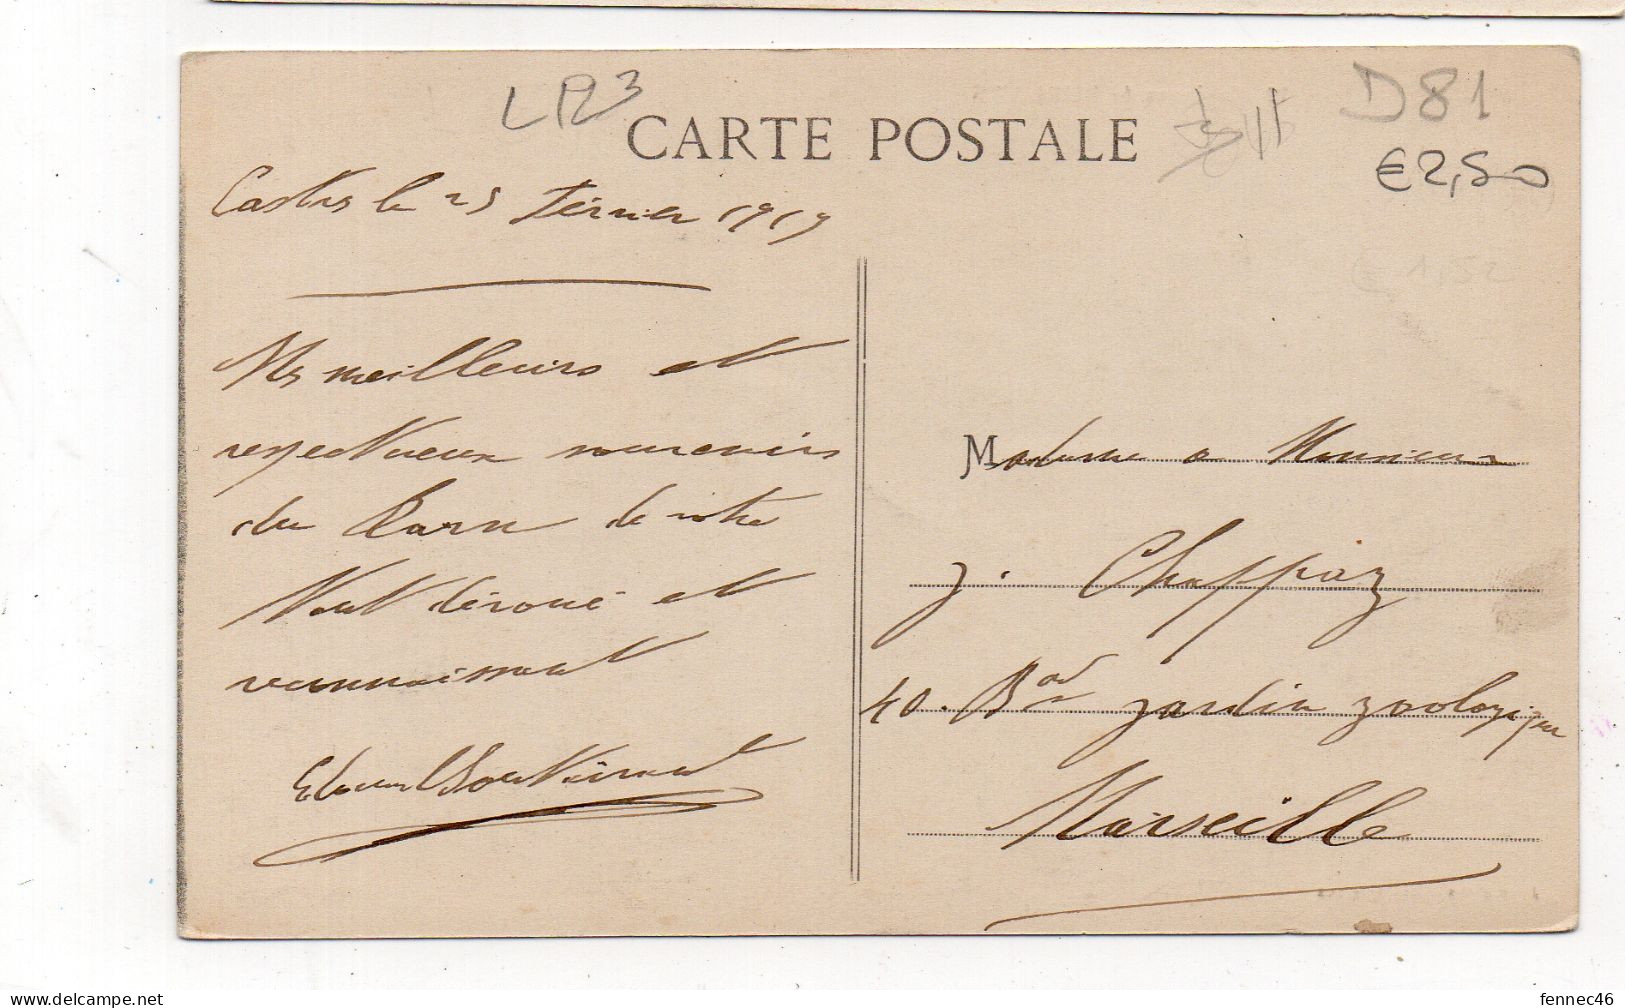 LR3
D81
CARTE POSTALE
€2,50
Castres le 25 février 1919
Mes meilleurs et
respectueux souvenirs
du Tarn de votre
tout dévoué et
reconnaissant
Madame & Monsieur
J. Chappaz
40. Bard jardin zoologique
Marseille
www.delcampe.net
fennec46